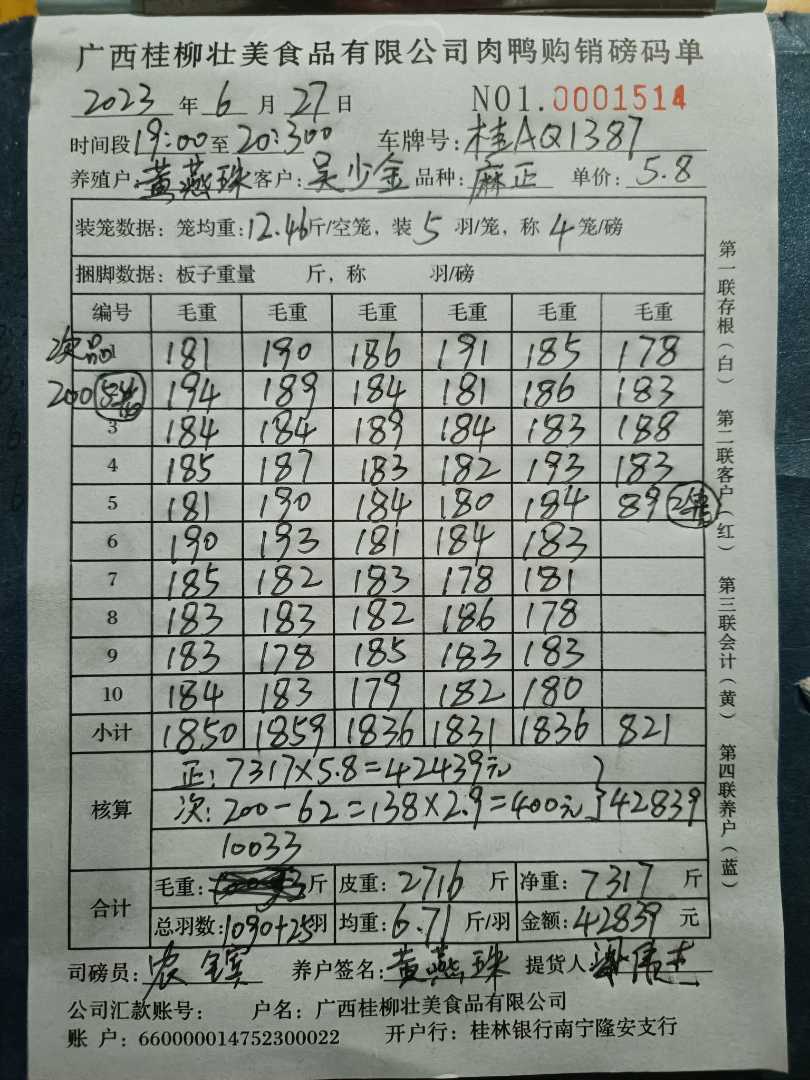 广西桂柳壮美食品有限公司肉鸭购销磅码单
2023 年 6 月 27 日 NO1.0001514
时间段 19:00 至 20:300 车牌号: 桂AQ1387
养殖户: 黄燕珠 客户: 吴少金 品种: 麻正 单价: 5.8
装笼数据: 笼均重: 12.46 斤/空笼, 装 5 羽/笼, 称 4 笼/磅
捆脚数据: 板子重量 斤, 称 羽/磅
编号 毛重 毛重 毛重 毛重 毛重 毛重
次品 181 190 186 191 185 178
200 194 189 184 181 186 183
3 184 184 189 184 183 188
4 185 187 183 182 193 183
5 181 190 184 180 184 89 2笼
6 190 193 181 184 183
7 185 182 183 178 181
8 183 183 182 186 178
9 183 178 185 183 183
10 184 183 179 182 180
小计 1850 1859 1836 1831 1836 821
核算
正: 7317×5.8=42439元
次: 200-62=138×2.9=400元 } 42839
10033
合计
毛重: 斤 皮重: 2716 斤 净重: 7317 斤
总羽数: 1090+25 羽 均重: 6.71 斤/羽 金额: 42839 元
司磅员: 农 养户签名: 黄燕珠 提货人:
公司汇款账号: 户名: 广西桂柳壮美食品有限公司
账 户: 660000014752300022 开户行: 桂林银行南宁隆安支行
第一联存根(白) 第二联客户(红) 第三联会计(黄) 第四联养户(蓝)